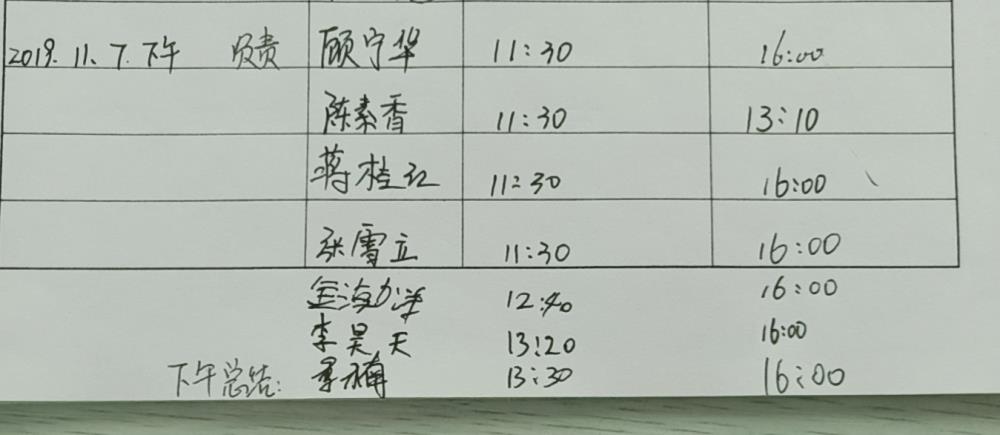 2019.11.7.下午 负责 顾宁华 11:30 16:00
陈素香 11:30 13:10
蒋桂红 11:30 16:00
张雪立 11:30 16:00
金海 12:40 16:00
李昊天 13:20 16:00
下午总结: 李楠 13:30 16:00